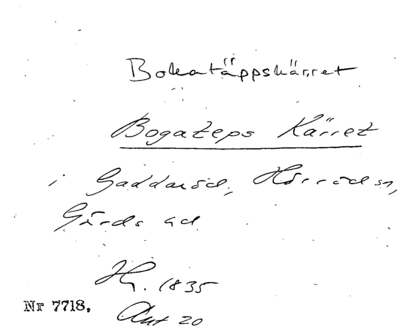 Bokatäppskärret
Bogateps Kärret
i Gaddaröd, Hörröd sn,
Gärds hd
Hy. 1835
Nr 7718.
Akt 20